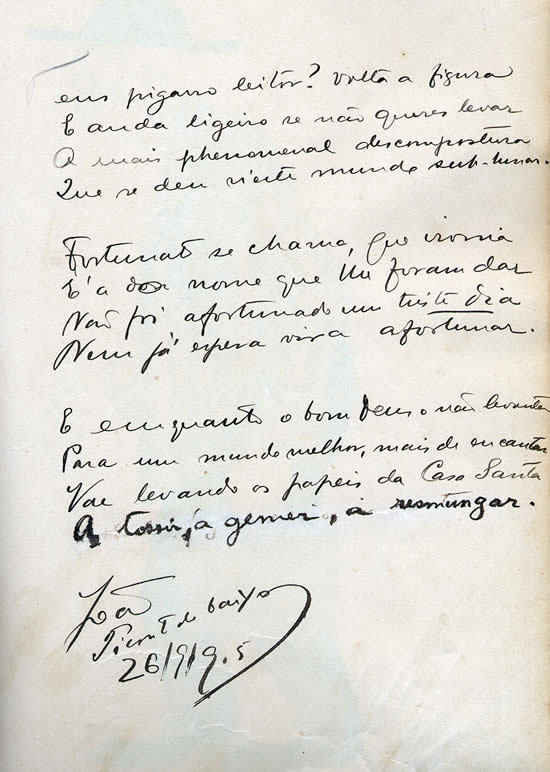 pigarro leitor? volta a figura
E anda ligeiro se não queres levar
A mais phenomenal descompostura
Que se deu n'este mundo sub-lunar.
Fortunato se chama, que ironia
E' a do nome que lhe foram dar
Não foi afortunado um triste dia
Nem já espera vir a afortunar.
E emquanto o bom Deus o não levanta
Para um mundo melhor, mais de encantar
Vae levando os papeis da Casa Santa
A tossir, a gemer, a resmungar.
João
26/9/9